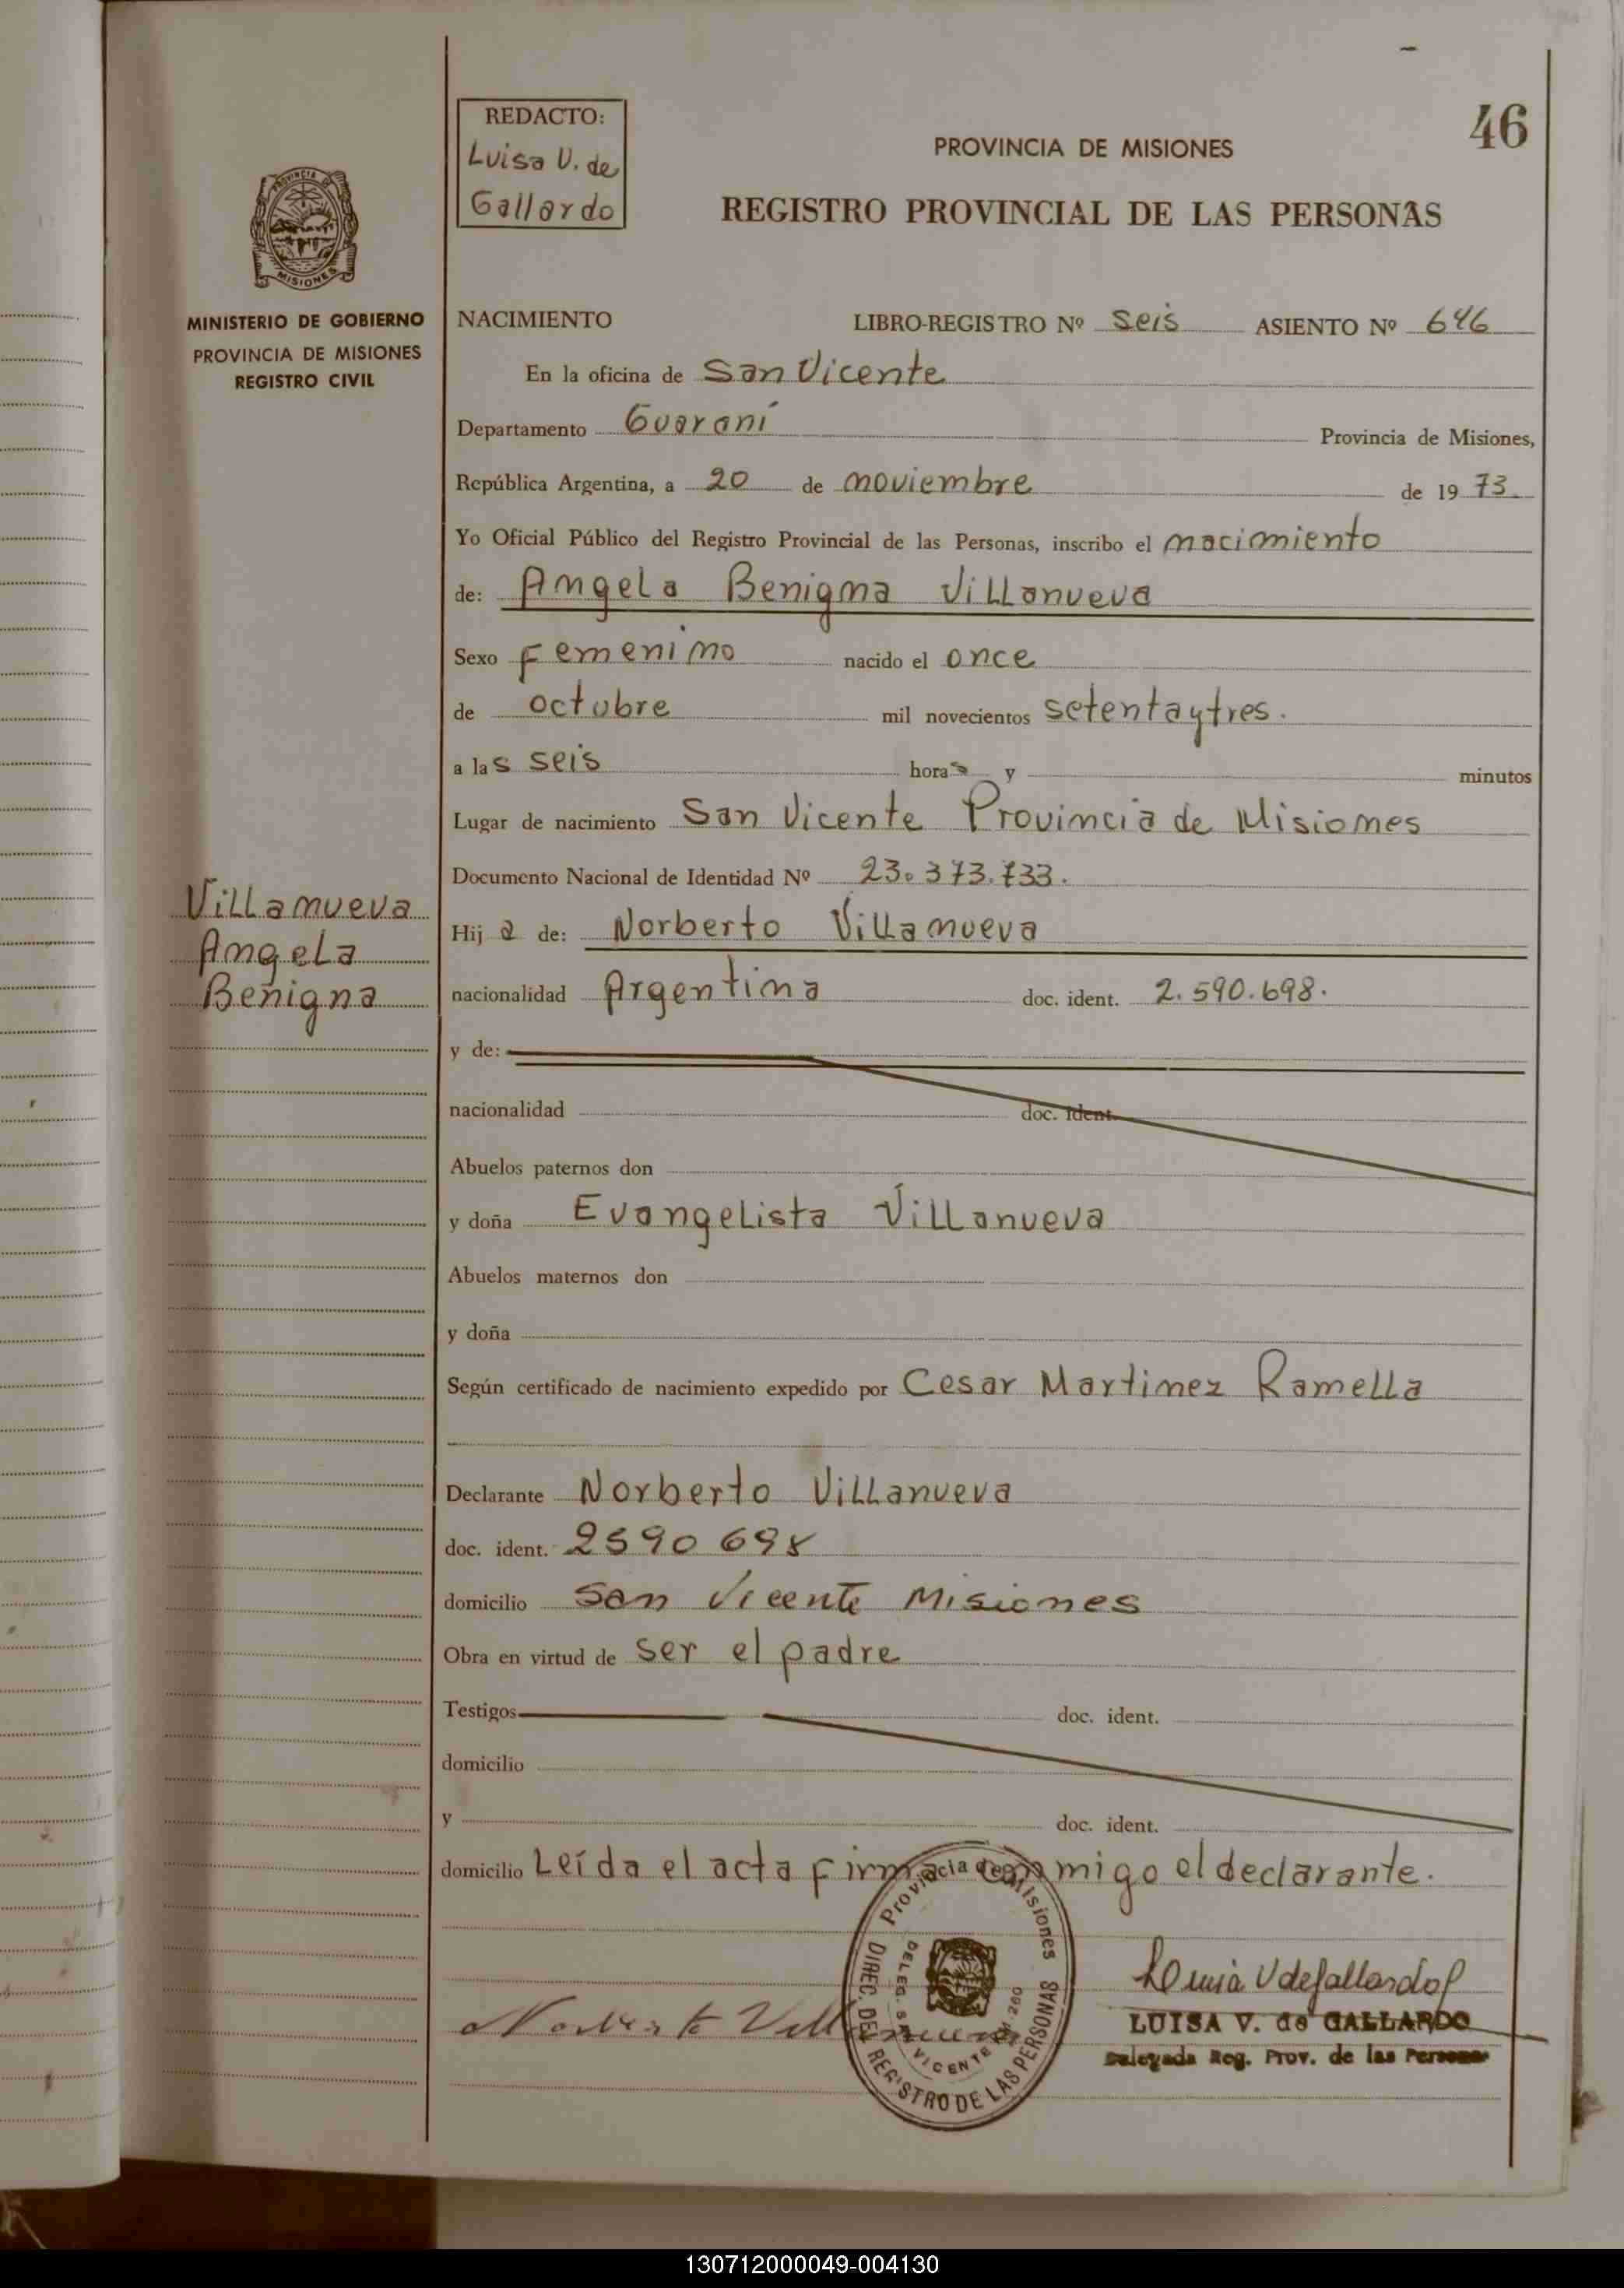 REDACTO:
Luisa V. de
Gallardo
46
PROVINCIA DE MISIONES
REGISTRO PROVINCIAL DE LAS PERSONAS
PROVINCIA DE
MISIONES
MINISTERIO DE GOBIERNO
PROVINCIA DE MISIONES
REGISTRO CIVIL
NACIMIENTO LIBRO-REGISTRO Nº seis ASIENTO Nº 646
En la oficina de San Vicente
Departamento Guaraní Provincia de Misiones,
República Argentina, a 20 de noviembre de 1973
Yo Oficial Público del Registro Provincial de las Personas, inscribo el nacimiento
de: Angela Benigna Villanueva
Sexo Femenino nacido el once
de octubre mil novecientos setentaytres.
a las seis horas y minutos
Lugar de nacimiento San Vicente Provincia de Misiones
Documento Nacional de Identidad Nº 23.373.733.
Villanueva
Angela
Benigna
Hija de: Norberto Villanueva
nacionalidad Argentina doc. ident. 2.590.698.
y de:
nacionalidad doc. ident.
Abuelos paternos don
y doña Evangelista Villanueva
Abuelos maternos don
y doña
Según certificado de nacimiento expedido por Cesar Martinez Ramella
Declarante Norberto Villanueva
doc. ident. 2590698
domicilio San Vicente Misiones
Obra en virtud de ser el padre
Testigos doc. ident.
domicilio
y doc. ident.
domicilio Leída el acta firma conmigo el declarante.
Provincia de Misiones
DIREC. DEL REGISTRO DE LAS PERSONAS
Norberto Villanueva
Luisa V de Gallardo
LUISA V. de GALLARDO
Delegada Reg. Prov. de las Personas
130712000049-004130